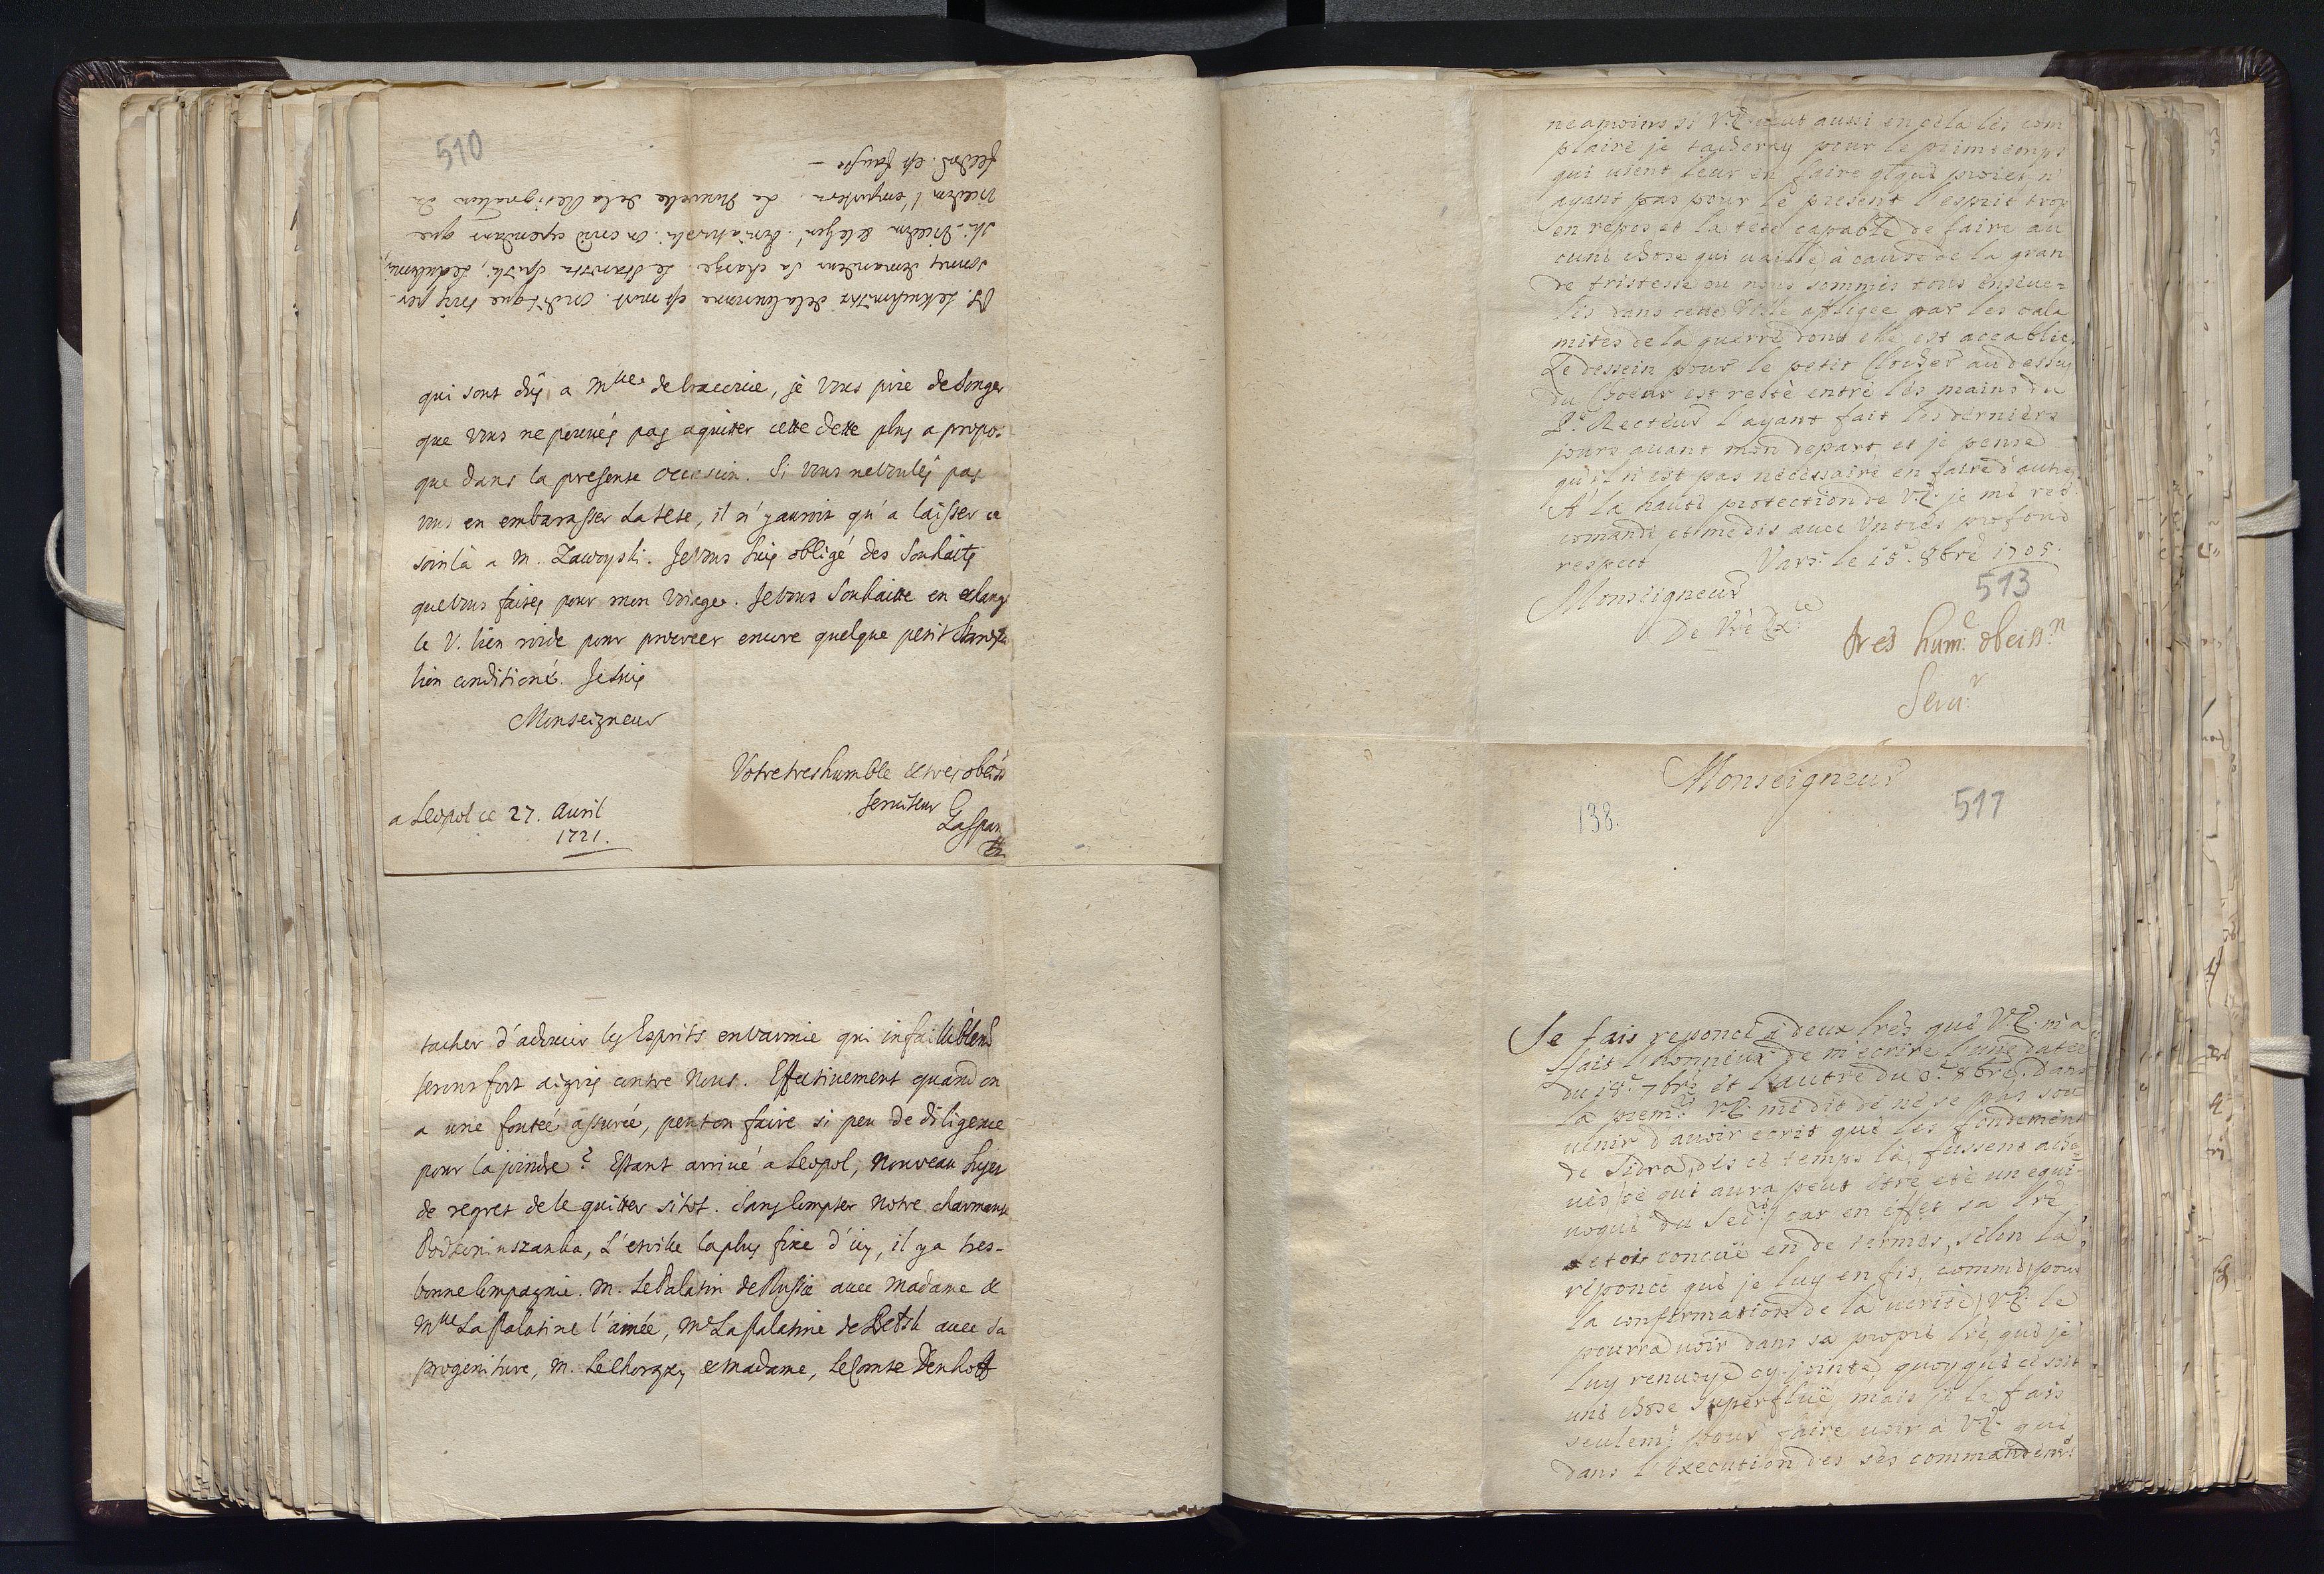 510
PS. de la couronne est mort. On dit que trois per-
sonnes demandent sa charge. Le Starosta
On croid cependant que
l'emportera. La Nouvelle de la Resignation du
est fausse
qui sont dûs a Mlle de je vous prie de songer
que vous ne pouvés pas aquitter cette dette plus a propos
que dans la presente occasion. Si vous ne voulés pas
vous en embarasser la teste, il n'y auroit qu'a laisser ce
soin là a M. Zawoyski. Je vous suis obligé des souhaits
que vous faites pour mon voiage. Je vous souhaitte en echange
le V. bien roide pour procreer encore quelque petit
bien conditioné. Je suis
Monseigneur
Votre tres humble et tres obeiss
serviteur
Gaspar
a Leopol ce 27. Avril
1721.
tacher d'adoucir les Esprits en varmie qui infailliblem
seront fort aigris contre Nous. Effectivement quand on
a une fontée assurée, peut on faire si peu de diligence
pour la joindre? Estant arrivé a Leopol, Nouveau sujet
de regret de le quitter si tot. Sans compter Notre charmante
L'etoile la plus fixe d'icy, il y a tres-
bonne compagnie. M. Le Palatin de Russie avec Madame &
Mlle La Palatine l'ainée, Me La Palatine de avec sa
progeniture, M. Le Chorązy & Madame, Le Comte Denhoff
neamoins si V.E. veut aussi en cela les com
plaire je tacheray pour le printemps
qui vient leur en faire qlque proiet, n'
ayant pas pour le present l'esprit trop
en repos et la tete capable de faire au
cune chose qui vaille à cause de la gran
de tristesse ou nous sommes tous enseve=
lis dans cette Ville affligée par les cala
mites de la guerre dont elle est accablée.
Le dessein pour le petit Clocher au dessus
du Choeur est resté entre les mains du
P. Recteur l'ayant fait les derniers
jours avant mon depart et je pense
qu'il n'est pas necessaire en faire d'autres
A la haute protection de V.E. je me re
comande et me dis avec Un tres profond
respect Vars. le 15e 8bre 1705.
513
Monseigneur
De Vre Exce
tres hum. obeiss.n
Serv.r
Monseigneur
138.
511
Je fais reponce à deux lres que V.E. m'a
fait l'honneur de m'ecrire l'une datée
du 18e 7bre et l'autre du 3e 8bre. Dans
la prem. V.E. me dit de ne se pas sou
venir d'avoir ecrit que les fondemens
de Sidra, des ce temps là, fussent ache
vés (ce qui aura peut être eté un equi
voque du Sec.) car en effet sa lre
etoit conceüe en de termes, selon la
réponce que je luy en fis, comme, pour
la confirmation de la verité, V.E. le
pourra voir dans sa propre lre, que je
luy renvoye cy-jointe, quoyque ce soit
une chose superflüe, mais je le fais
seulem. pour faire voir à V.E. que
dans l'execution des ses commandem.s